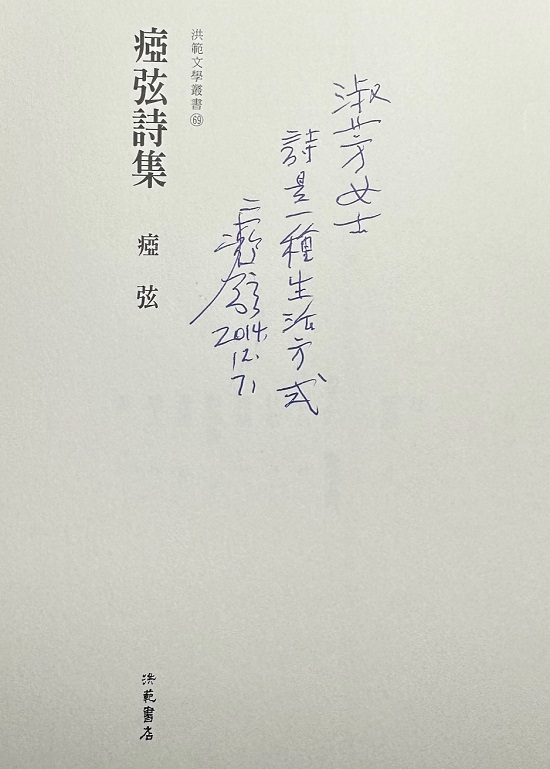 淑芳女士
詩是一種生活方式
2014.
12.
7.
洪範文學叢書69
瘂弦詩集
瘂弦
洪範書店